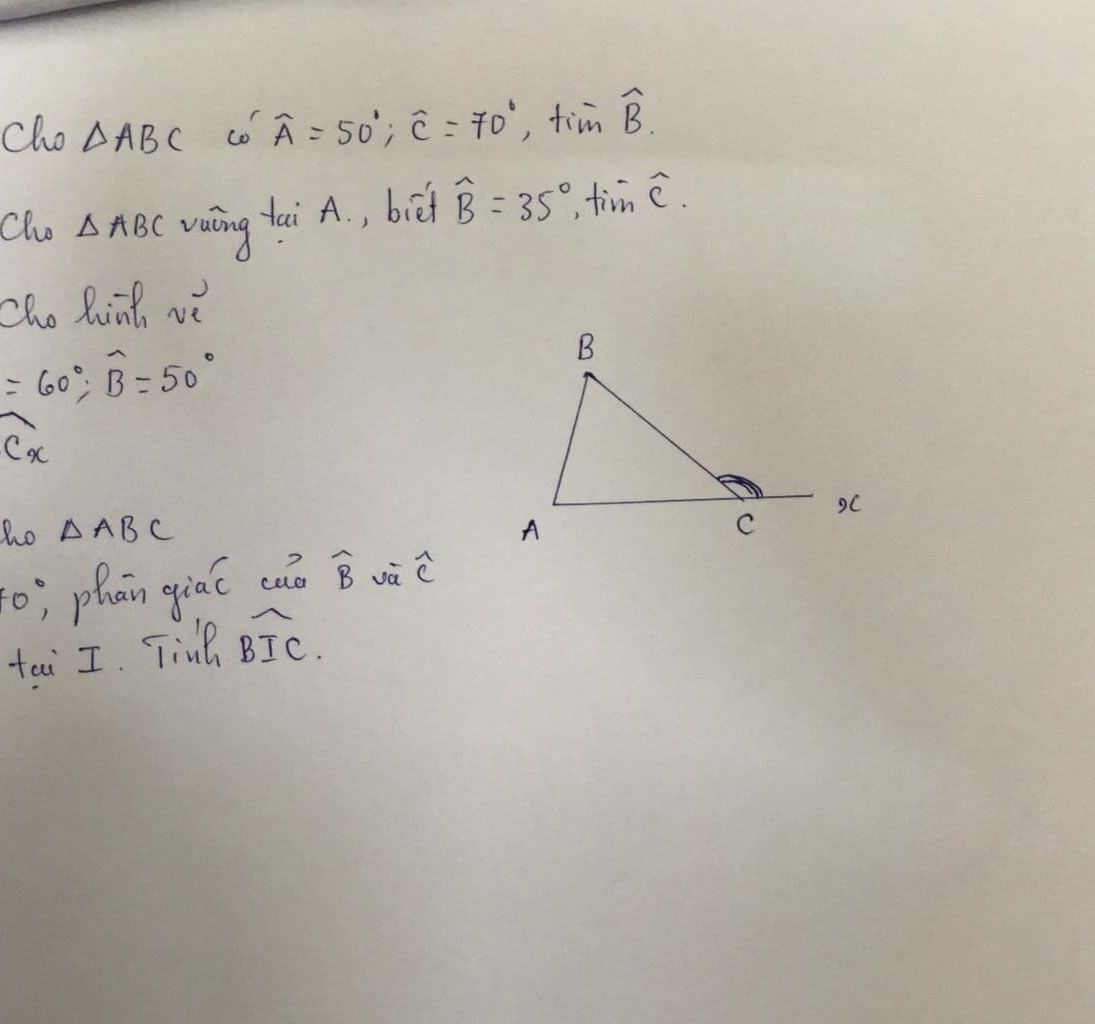 Cho ΔABC có Â = 50°; Ĉ = 70°, tìm B̂.
Cho ΔABC vuông tại A., biết B̂ = 35°, tìm Ĉ.
Cho hình vẽ
= 60°; B̂ = 50°
Cx
B
A
C
x
ΔABC
0°, phân giác của B̂ và Ĉ
tại I. Tính BIC.